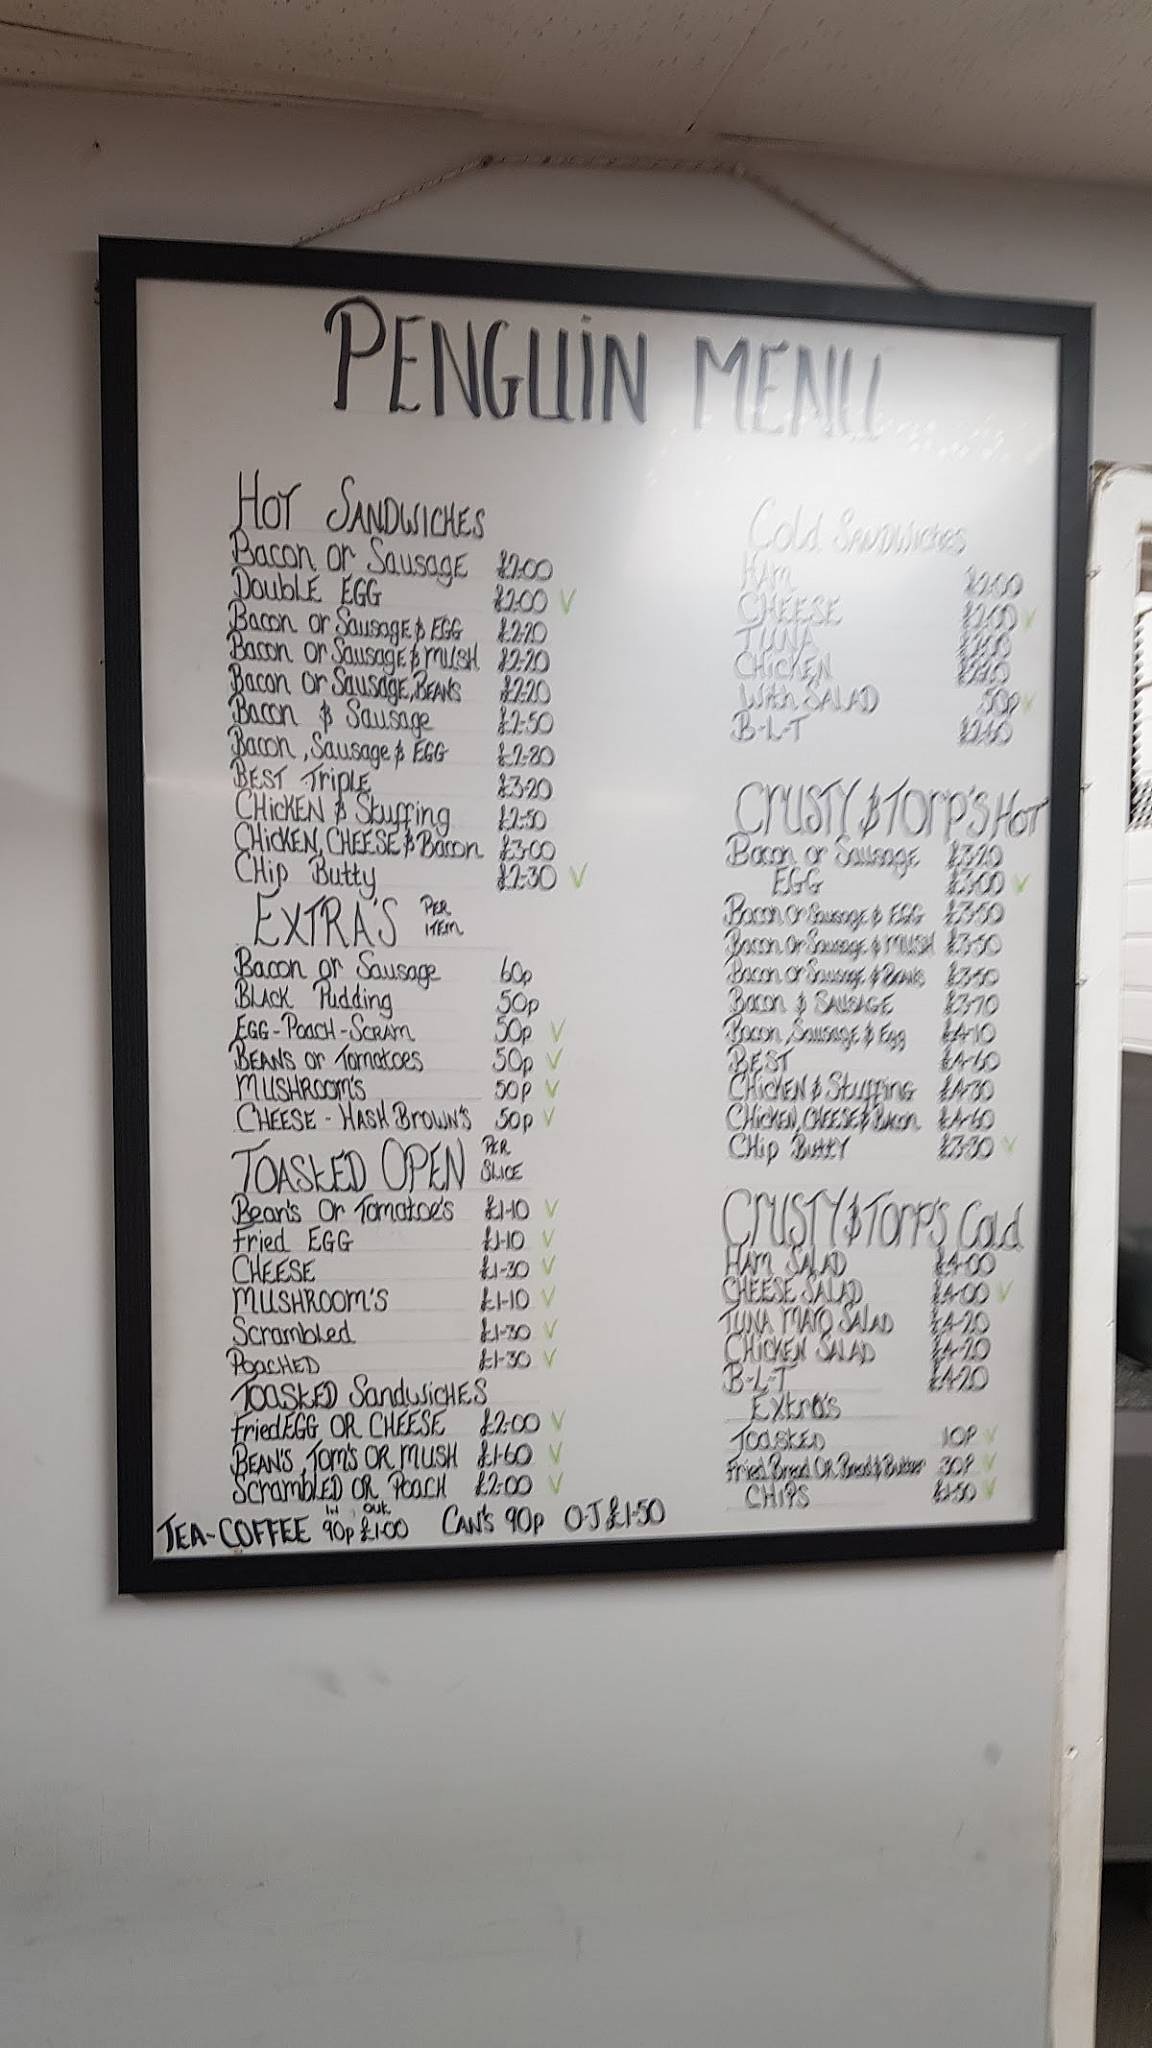 PENGUIN MENU
HOT SANDWICHES
Bacon or Sausage £2.00
DOUBLE EGG £2.00 V
Bacon or Sausage & EGG £2.20
Bacon or Sausage & MUSH £2.20
Bacon or Sausage, BEANS £2.20
Bacon & Sausage £2.50
Bacon, Sausage & EGG £2.80
BEST Triple £3.20
CHICKEN & Stuffing £2.50
CHICKEN, CHEESE & Bacon £3.00
CHip Butty £2.30 V
EXTRA'S PER ITEM
Bacon or Sausage 60p
BLACK Pudding 50p
EGG-POACH-SCRAM 50p V
BEANS or Tomatoes 50p V
MUSHROOM'S 50p V
CHEESE - HASH BROWN'S 50p V
TOASTED OPEN PER SLICE
Bean's Or Tomatoe's £1-10 V
Fried EGG £1-10 V
CHEESE £1-30 V
MUSHROOM'S £1-10 V
Scrambled £1-30 V
POACHED £1-30 V
TOASTED SandwicHES
Fried EGG OR CHEESE £2.00 V
BEAN'S, TOM'S OR MUSH £1.60 V
ScramBLED OR POACH £2.00 V
TEA-COFFEE IN 90p OUT £1.00 CAN'S 90p O-J £1-50
Cold SANDWICHES
HAM £2.00
CHEESE £2.00 V
TUNA
CHICKEN
With SALAD 50p V
B-L-T
CRUSTY & TORP'S HOT
Bacon or Sausage £3.20
EGG £3.00 V
Bacon Or Sausage & EGG £3.50
Bacon Or Sausage & MUSH £3.50
Bacon Or Sausage & Beans £3.50
Bacon & SAUSAGE £3.70
Bacon, Sausage & Egg £4.10
BEST £4-60
CHicKEN & Stuffing
Chicken, CHEESE & Bacon £4-60
CHip BUTTY V
CRUSTY & TORP'S Cold
HAM SALAD £4.00
CHEESE SALAD £4.00 V
TUNA MAYO SALAD £4-20
CHICKEN SALAD £4-20
B-L-T £4.20
EXtra's
TOASTED 10P V
Fried Bread OR Bread & Butter 30P V
CHIPS £1.50 V